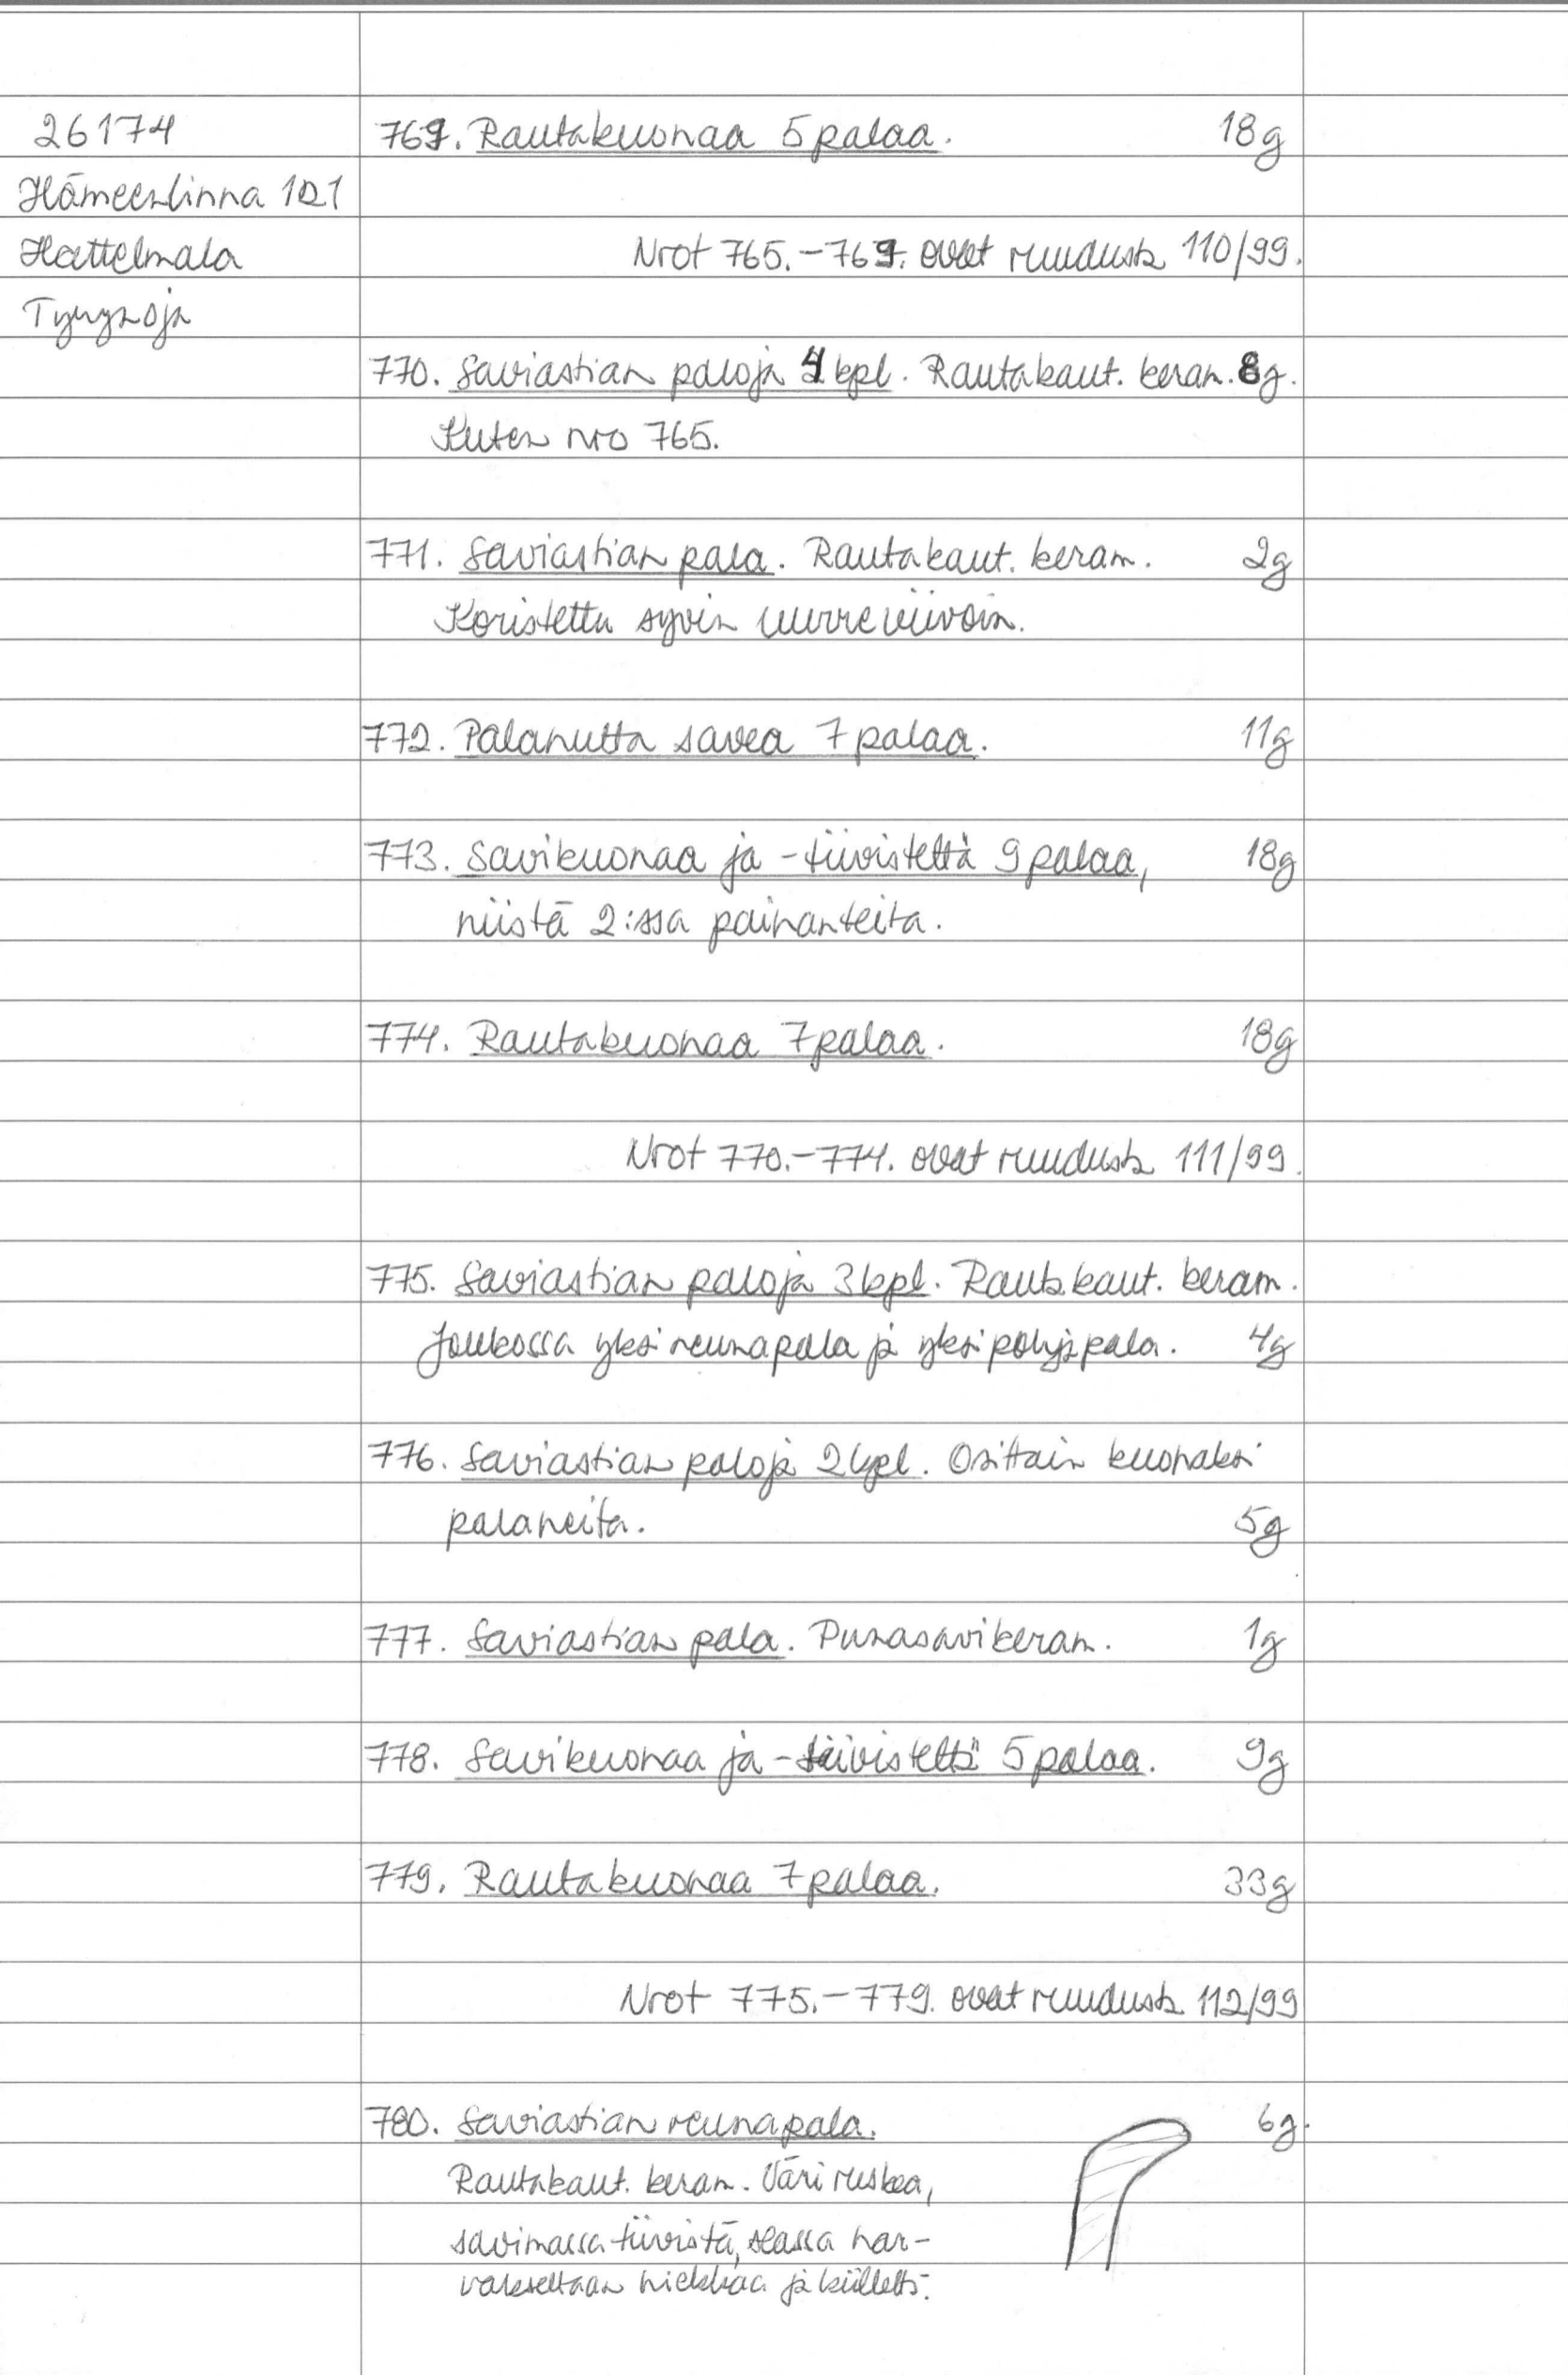 26174
Hämeenlinna 121
Hattelmala
Tyrynoja
769. Rautakuonaa 5 palaa. 18g
Nrot 765.-769. ovat ruudusta 110/99.
770. Saviastian paloja 4 kpl. Rautakaut. keram. 8g.
Kuten nro 765.
771. Saviastian pala. Rautakaut. keram. 2g
Koristettu syvin uurreviivoin.
772. Palanutta savea 7 palaa. 11g
773. Savikuonaa ja -tiivistettä 9 palaa, 18g
niistä 2:ssa painanteita.
774. Rautakuonaa 7 palaa. 18g
Nrot 770.-774. ovat ruudusta 111/99.
775. Saviastian paloja 3 kpl. Rautakaut. keram.
Joukossa yksi reunapala ja yksi pohjapala. 4g
776. Saviastian paloja 2 kpl. Osittain kuonaksi
palaneita. 5g
777. Saviastian pala. Punasavikeram. 1g
778. Savikuonaa ja -tiivistettä 5 palaa. 9g
779. Rautakuonaa 7 palaa. 33g
Nrot 775.-779. ovat ruudusta 112/99
780. Saviastian reunapala. 6g.
Rautakaut. keram. Väri ruskea,
savimassa tiivistä, seassa har-
vakseltaan hiekkaa ja kiillettä.